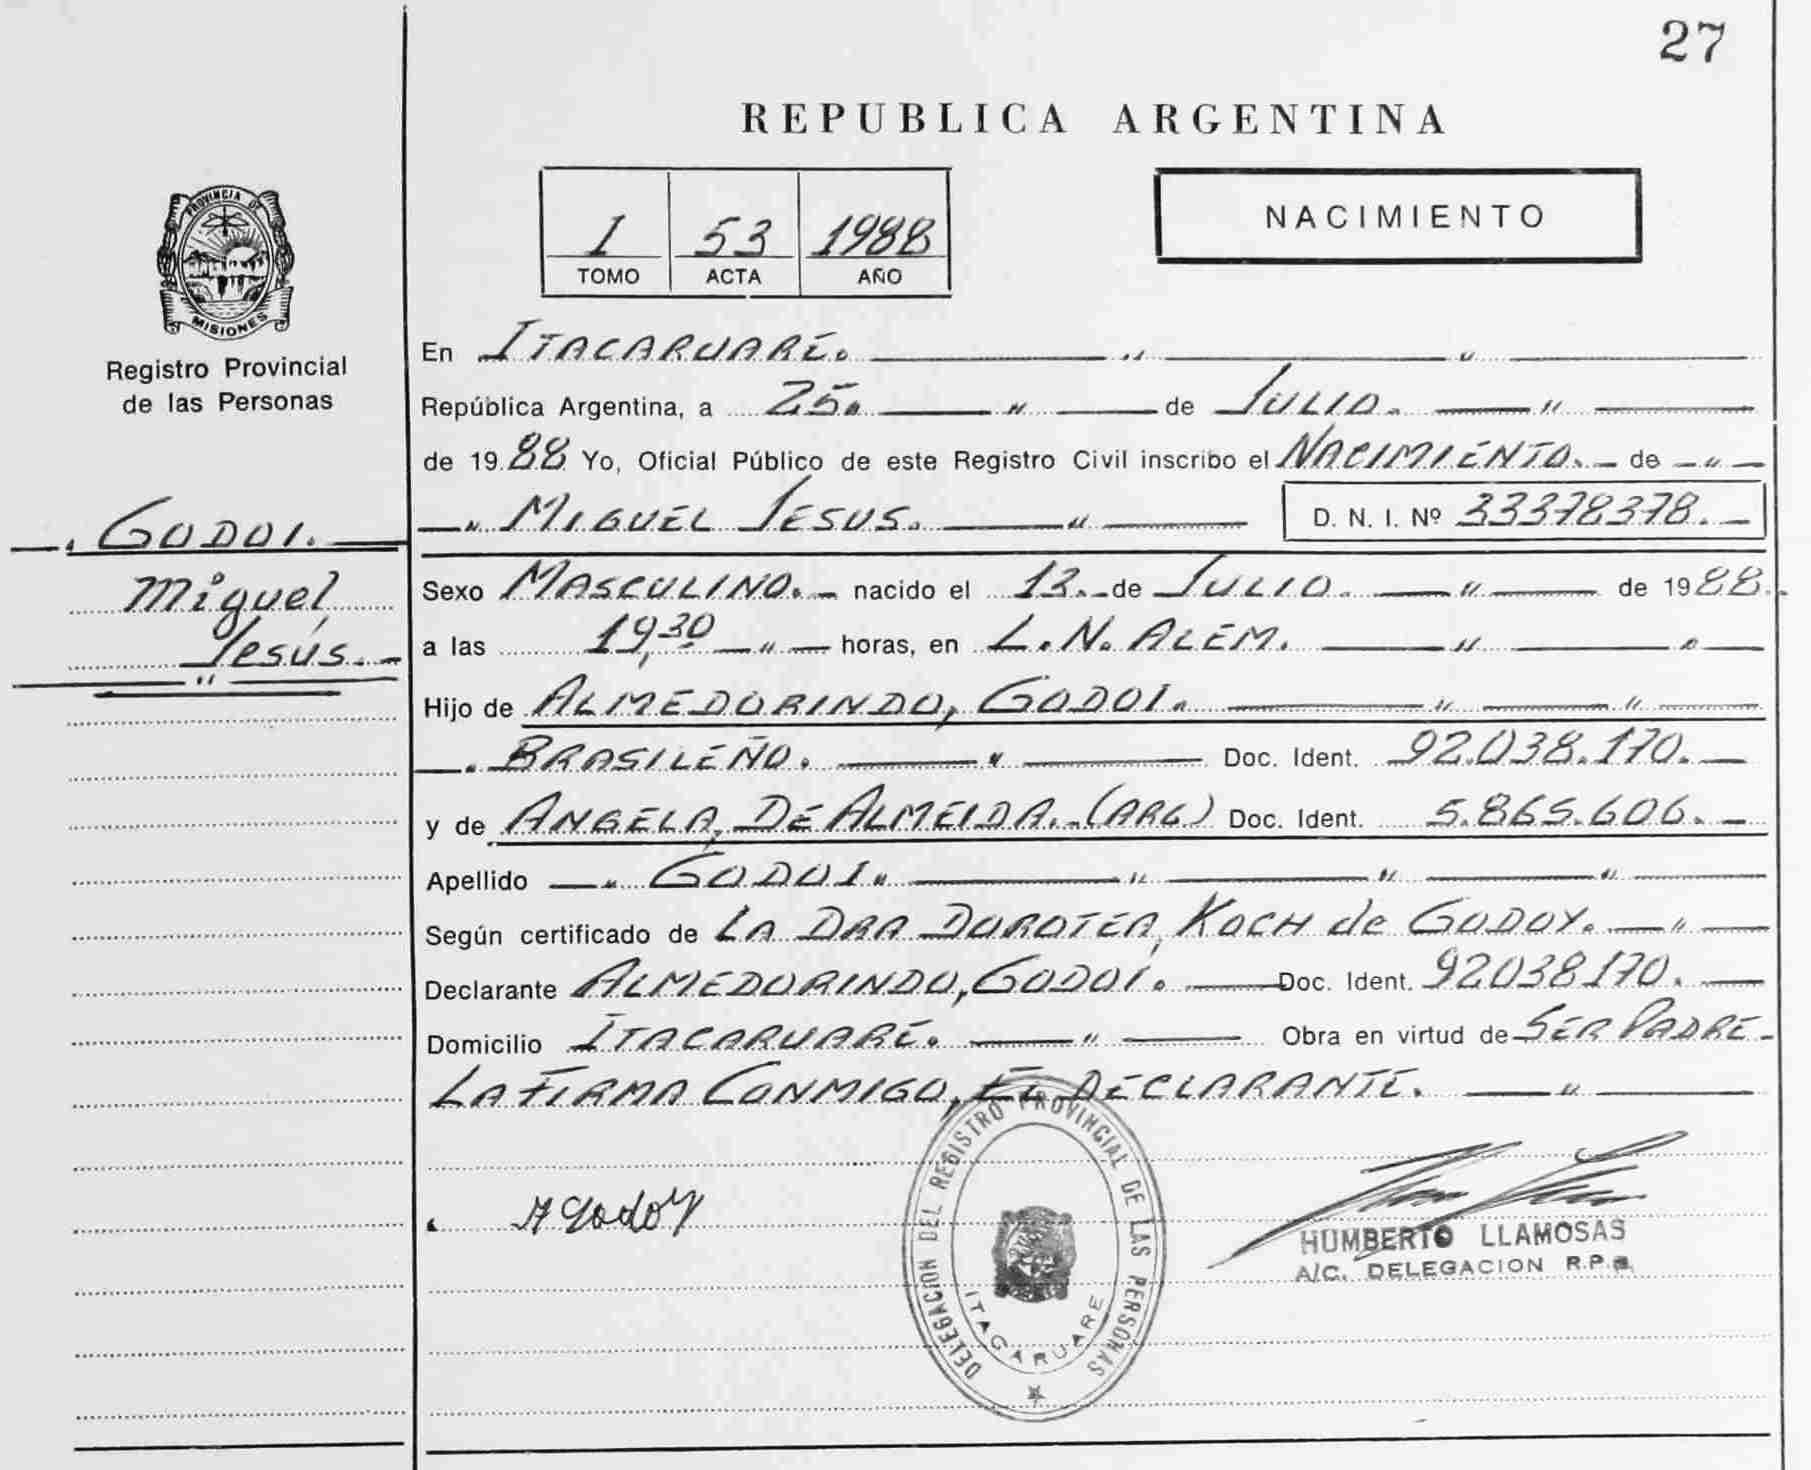 27
REPUBLICA ARGENTINA
I 53 1988
TOMO ACTA AÑO
NACIMIENTO
PROVINCIA DE
MISIONES
Registro Provincial
de las Personas
GODOI.
Miguel
Jesús.
En ITACARUARÉ.
República Argentina, a 25. de JULIO.
de 1988 Yo, Oficial Público de este Registro Civil inscribo el NACIMIENTO. de
MIGUEL JESUS. D. N. I. Nº 33378378.
Sexo MASCULINO. nacido el 13. de JULIO. de 1988.
a las 19,30 horas, en L.N. ALEM.
Hijo de ALMEDORINDO, GODOI.
BRASILEÑO. Doc. Ident. 92.038.170.
y de ANGELA, DE ALMEIDA. (ARG) Doc. Ident. 5.865.606.
Apellido GODOI.
Según certificado de LA DRA DOROTEA, KOCH de GODOY.
Declarante ALMEDORINDO, GODOI. Doc. Ident. 92038170.
Domicilio ITACARUARÉ. Obra en virtud de SER PADRE
LA FIRMA CONMIGO, EL DECLARANTE.
A Godoy
DELEGACION DEL REGISTRO PROVINCIAL DE LAS PERSONAS
ITACARUARE
HUMBERTO LLAMOSAS
A/C. DELEGACION R.P.